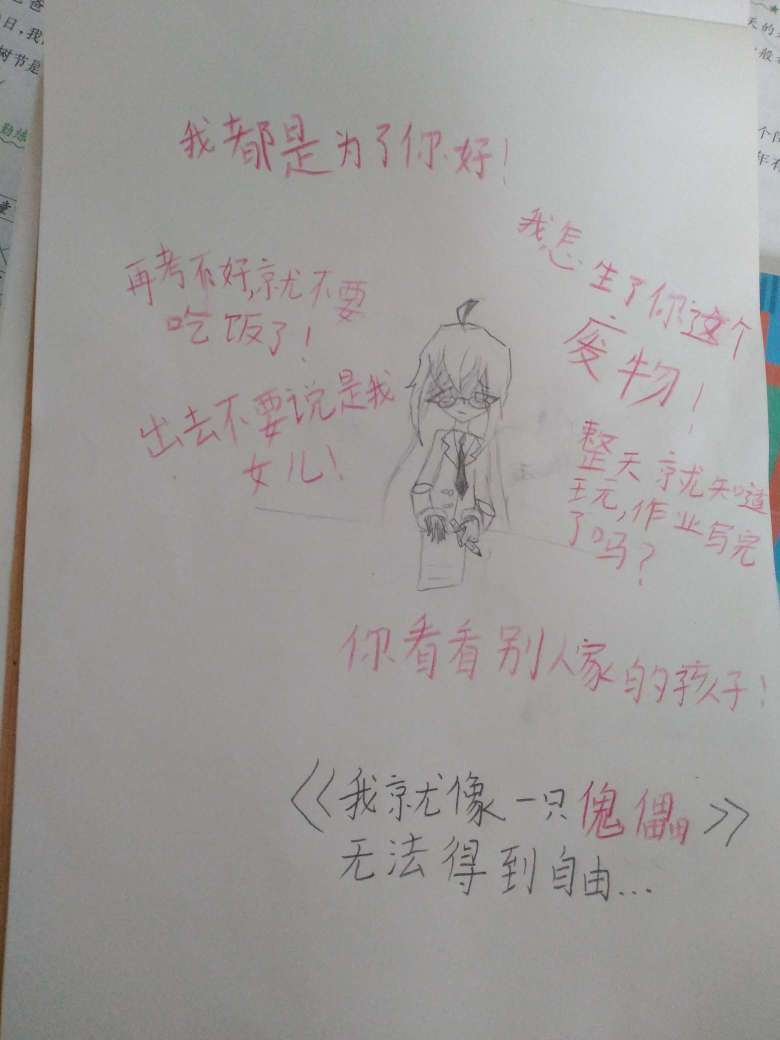 我都是为了你好！
我怎生了你这个
废物！
再考不好,就不要
吃饭了！
出去不要说是我
女儿！
整天就知道
玩,作业写完
了吗？
你看看别人家的孩子！
《我就像一只傀儡》
无法得到自由...